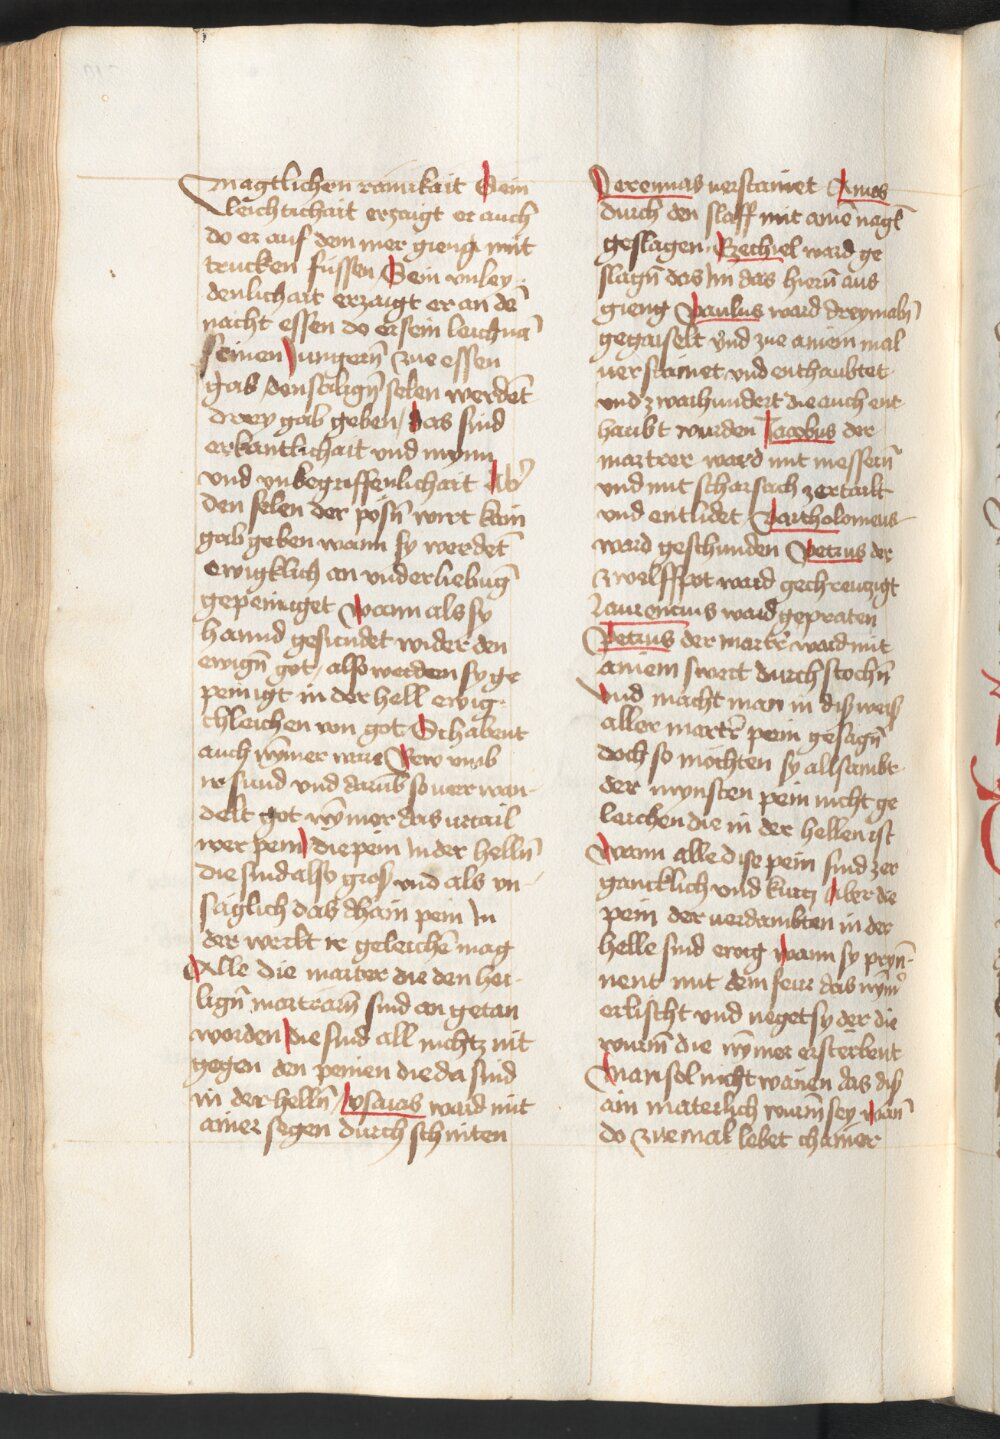 magtlichen rainikait Sein
leichtichait erzaigt er auch
do er auf dem mer gieng mit
trucken füssen Sein vnley
denlichait erzaigt er an dē
nacht essen do er sein leichnā
seinen Jungerñ zue essen
gab den säligñ selen werdēt
drey gab geben / das sind
erkantlichait vnd mynn
vnd vnbegriffenlichait Ab̾
den selen der pösñ wirt kain
gab geben wann sy werdēt
ewigklich an vnderliebūg
gepeiniget wann als sy
habend gesundet wider den
ewigñ got / also werden sy ge
peinigt in der hell ewig
chleichen von got Si habent
auch nȳmer ware Rew vmb
ir sund vnd darūb so uer wan
delt got nȳmer das vrtail
irer pein die pein in der hellñ
die sind also gross vnd als vn
säglich das dhain pein in
der werlt ir geleichē mag
Alle die marter die den hei
ligñ marträrñ sind an getan
worden die sind all nichtz nit
gegen den peinen die da sind
in der hellñ / ysaias ward mit
ainer segen durch schniten
Jeremias uerstainet Amos
durch den slaff mit ainē nagl
geslagen Ezechiel ward ge
slagñ das im das hierñ aus
gieng Paulus ward dreymalñ
gegaiselt vnd zue ainem mal
uerstainet vnd enthaubtet
vnd zwaihundert die auch ent
haubt wurden Jacobus der
martrer ward mit messerñ
vnd mit scharsach zertailt
vnd entlidet Bartholomeus
ward geschunden Petrus der
zwelffpot ward gechreuzigt
Laurencius ward gepraten
Petrus der martrer ward mit
ainem swert durch stochñ
Und macht man in diss weiss
aller martrer pein gesagñ
doch so möchten sy allsambt
der mynsten pein nicht ge
leichen die in der hellen ist
wann alle dise pein sind zer
gancklich vnd kurtz Aber die
pein der uerdambten in der
helle sind ewig wann sy pryn
nent mit dem feur das nȳm̾
erlischt vnd neget sy der die
wurm̄ die nȳmer ersterbent
Man sol nicht wänen das diss
ain materlich wurm̄ sey wan̄
do zue mal lebet chainer